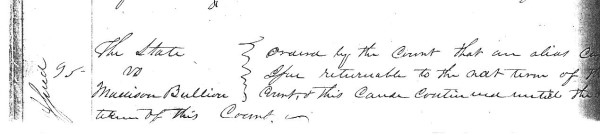 The State } Ordered by the Court that an alias ca
95- vs } Ifue returnable to the next term of
Madison Bullion } Court, & this Cause Continued until the
term of this Court.